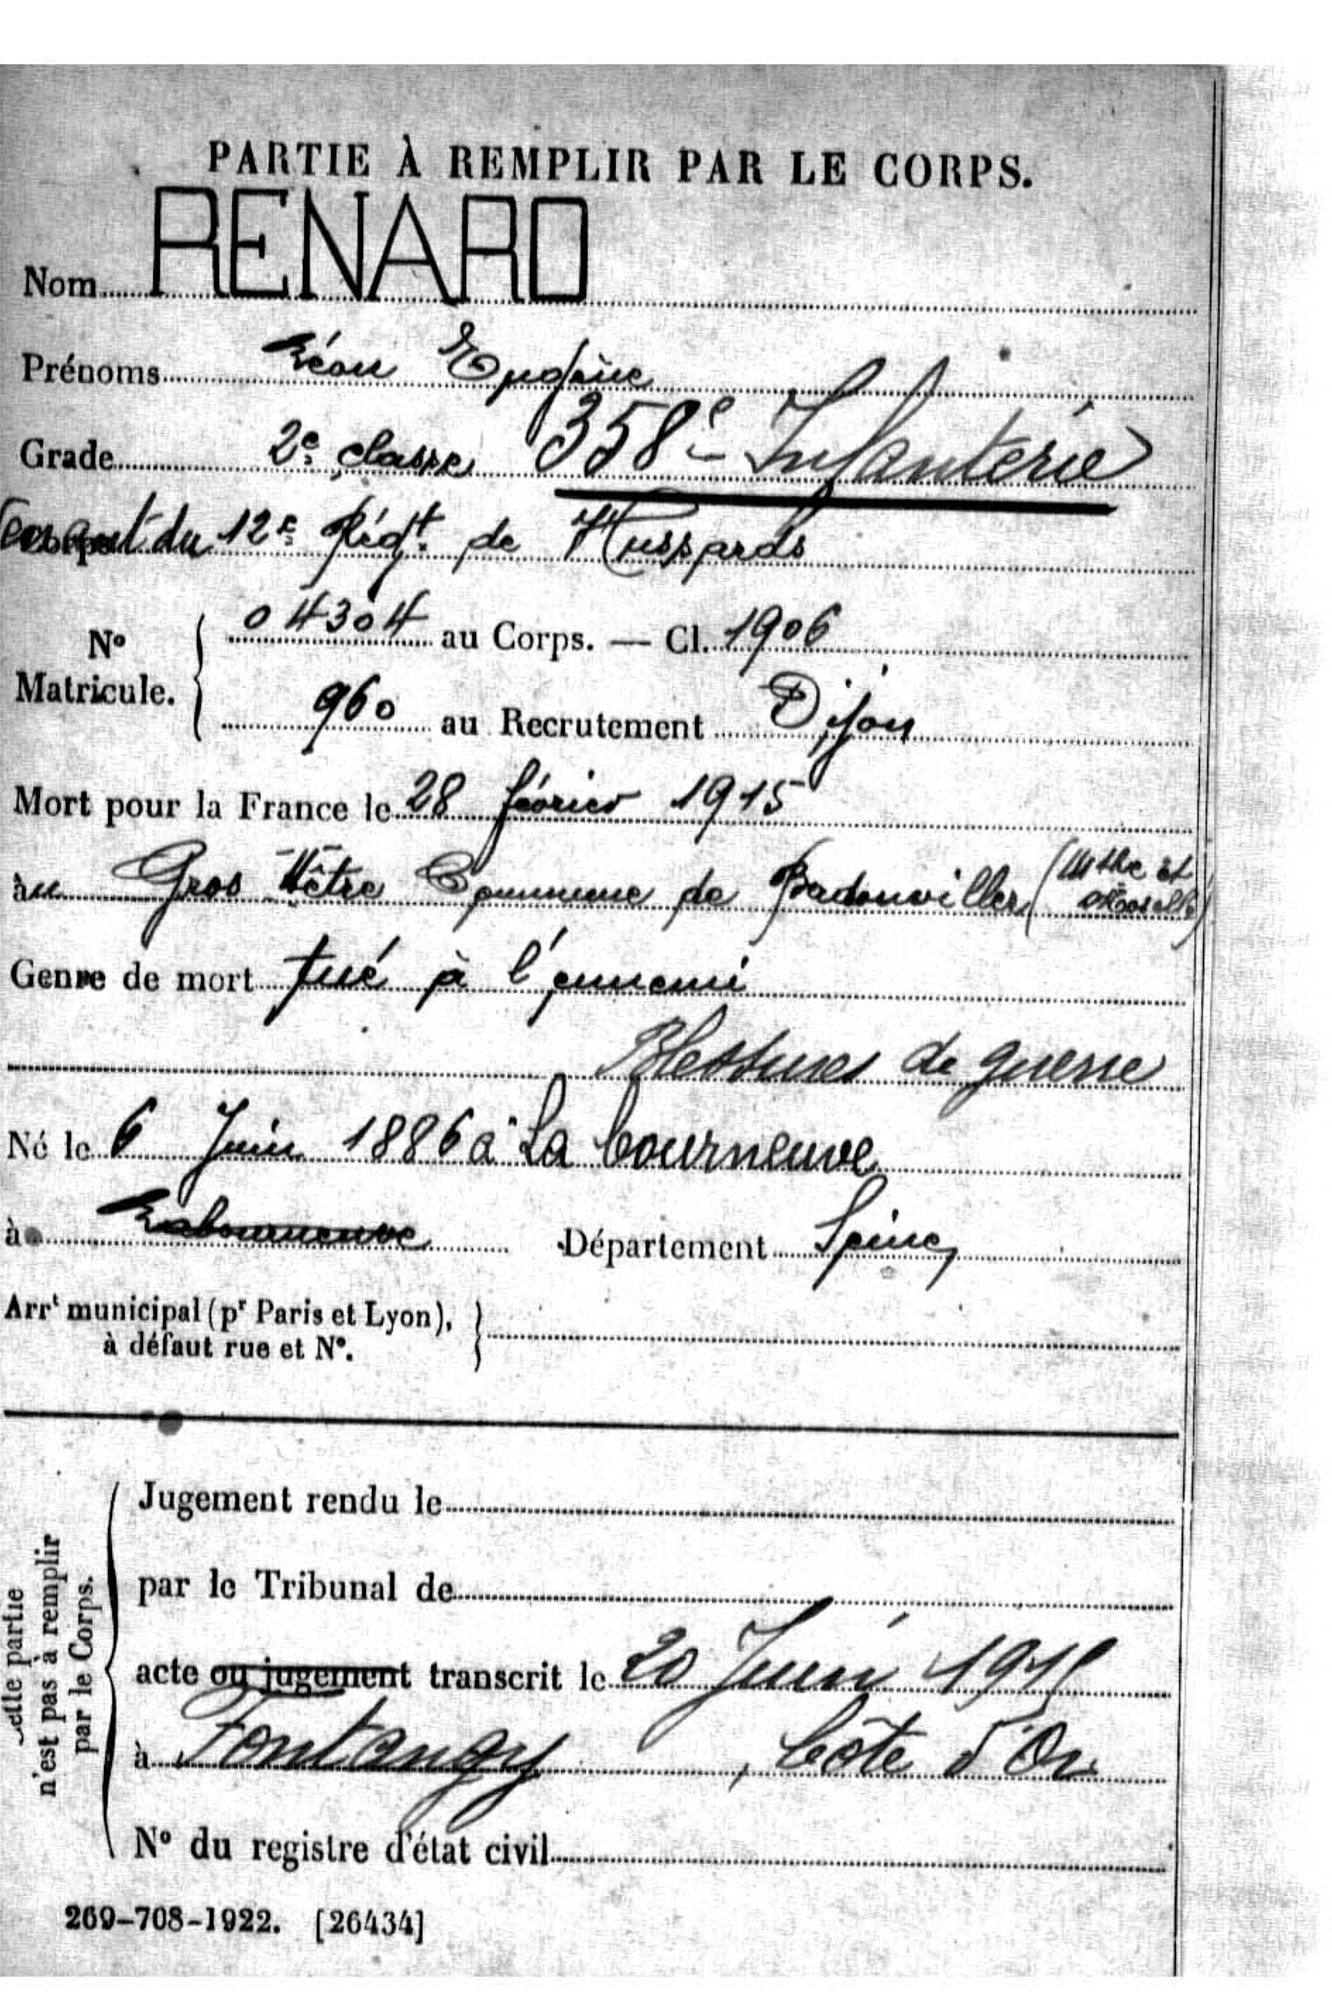 PARTIE À REMPLIR PAR LE CORPS.
Nom RENARD
Prénoms Léon Eugène
Grade 2e classe 358e Infanterie
Venant du 12e Régt. de Hussards
No Matricule. { 04304 au Corps. — Cl. 1906
960 au Recrutement Dijon
Mort pour la France le 28 février 1915
au Gros Hêtre Commune de Badonviller (Mthe et Moselle)
Genre de mort tué à l'ennemi
Blessures de guerre
Né le 6 Juin 1886 à La Courneuve
à Lacourneuve Département Seine
Arrt municipal (pr Paris et Lyon), à défaut rue et No. }
Cette partie n'est pas à remplir par le Corps.
Jugement rendu le
par le Tribunal de
acte ou jugement transcrit le 20 Juin 1915
à Fontangy, Côte d'Or
No du registre d'état civil
269-708-1922. [26434]